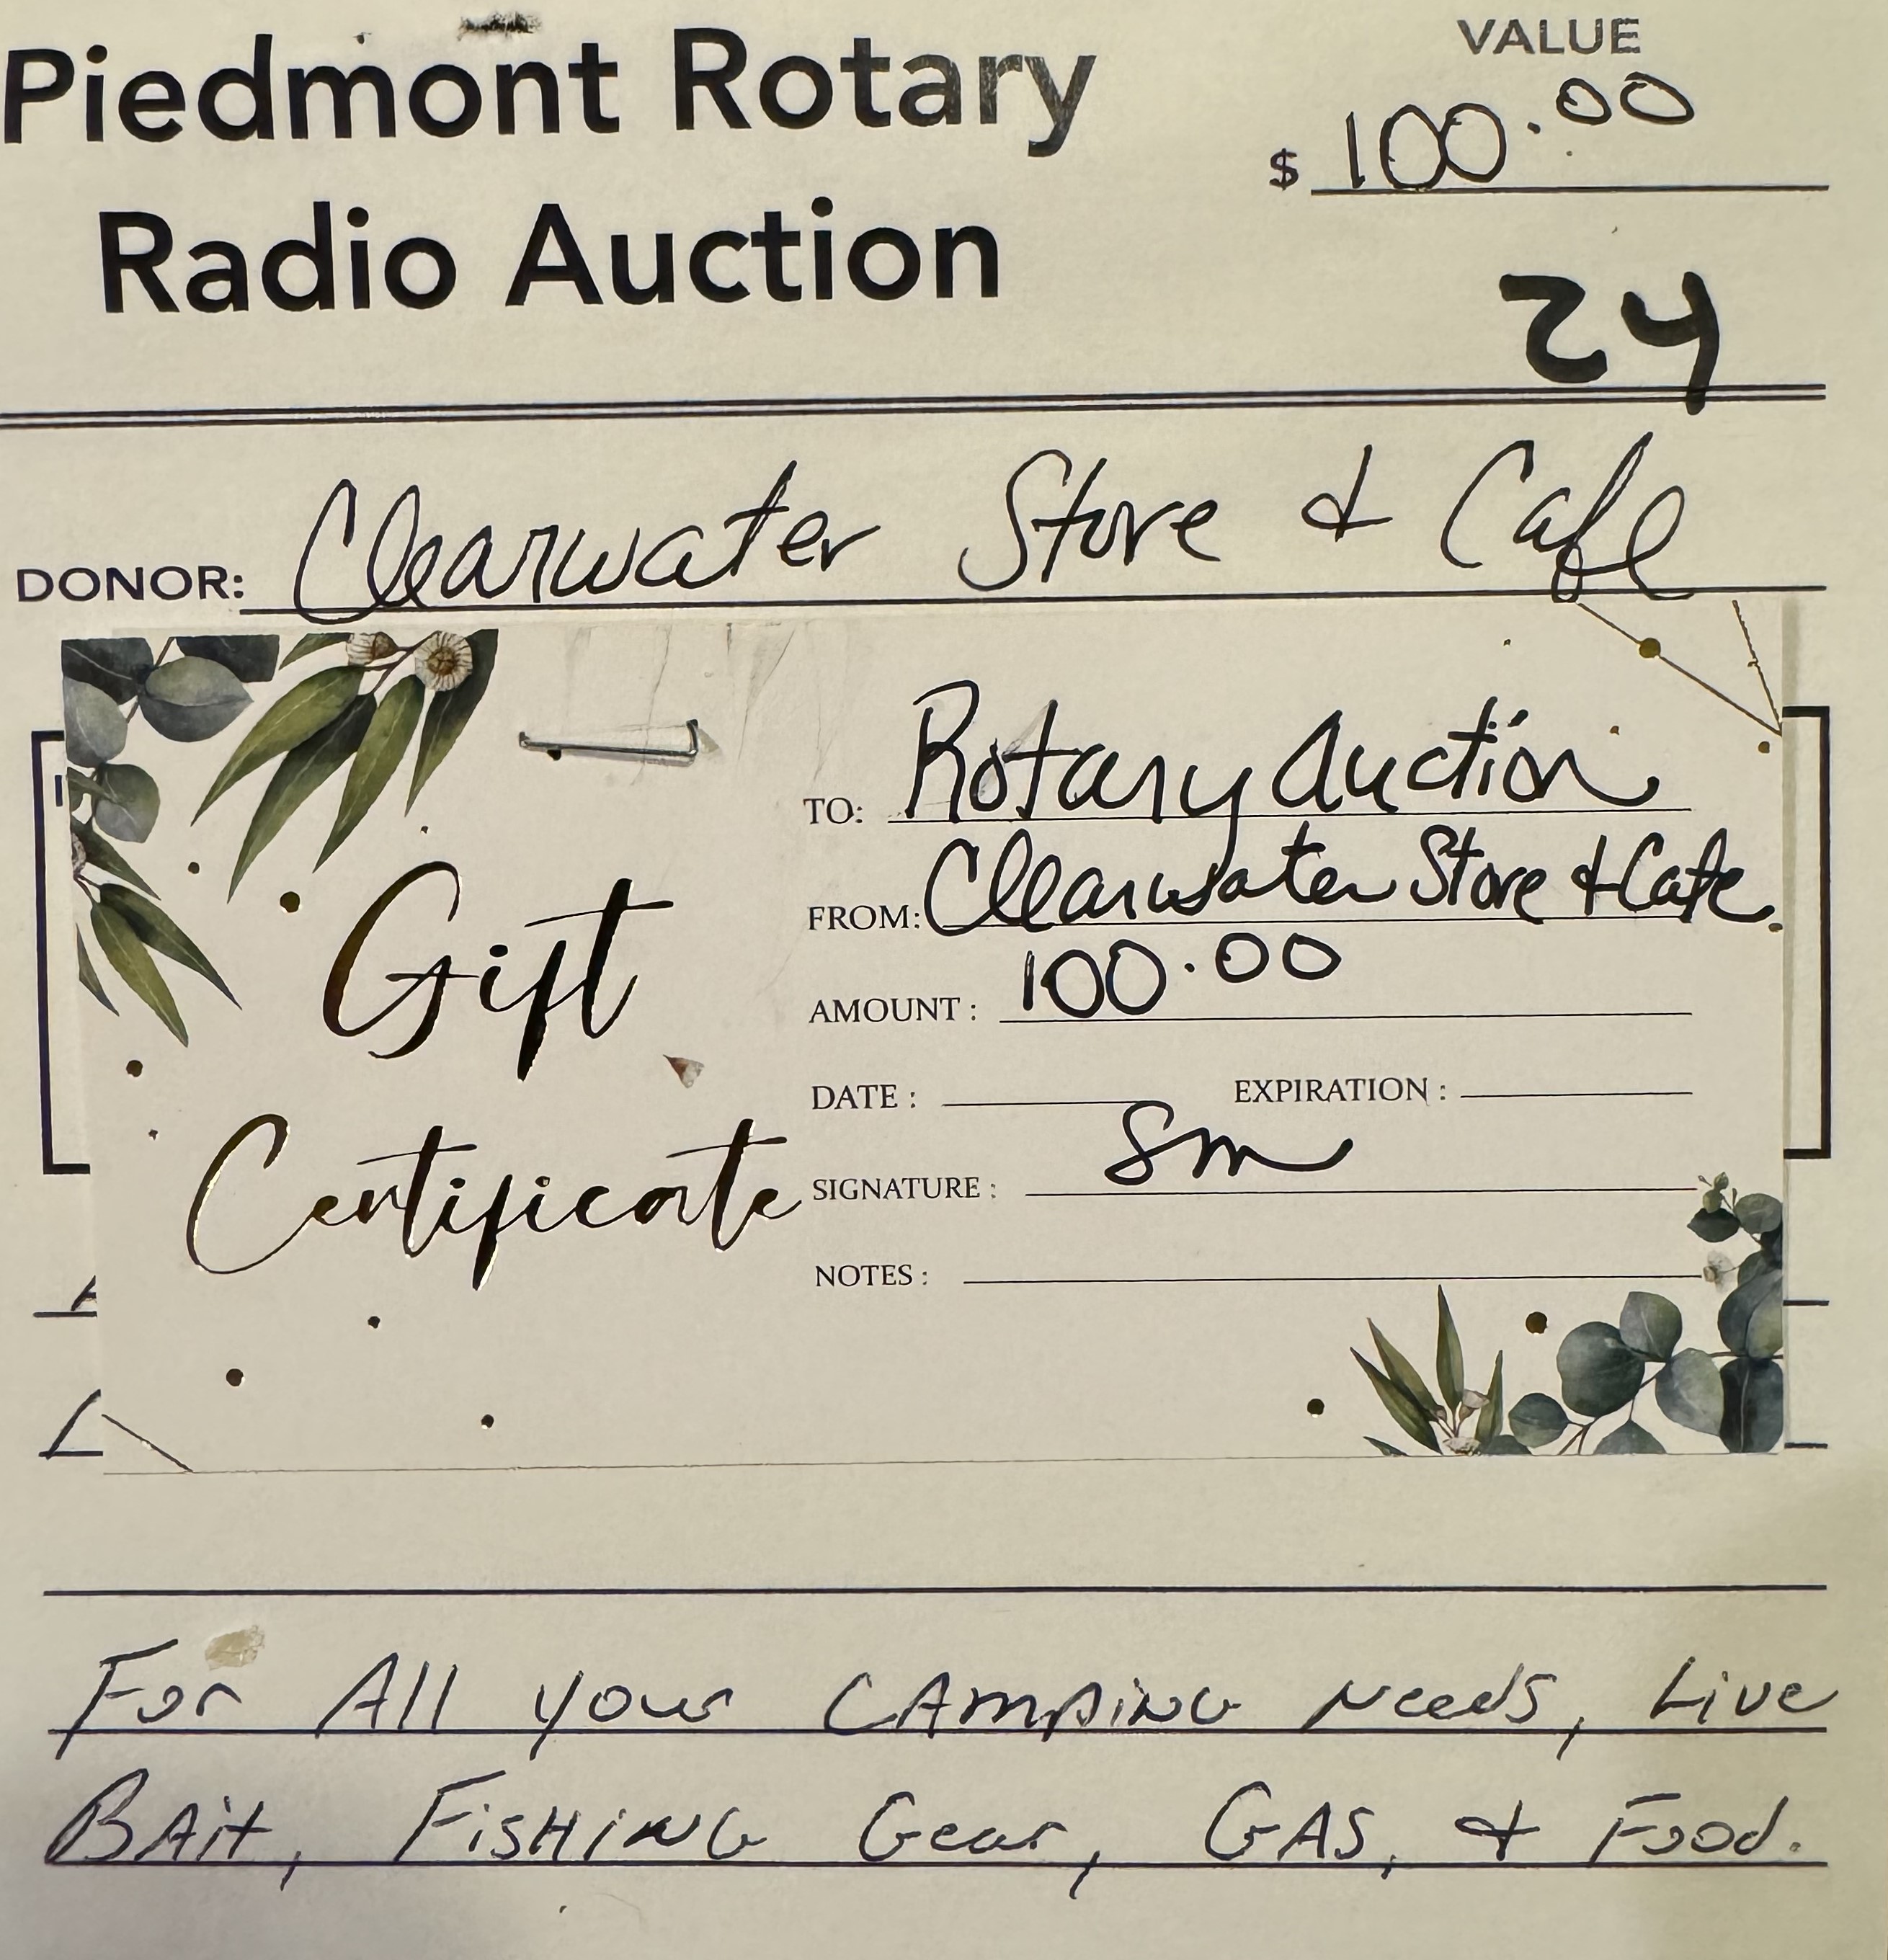 Piedmont Rotary
Radio Auction
VALUE
$ 100.00
24
DONOR: Clearwater Store & Cafe
Gift
Certificate
TO: Rotary Auction
FROM: Clearwater Store & Cafe.
AMOUNT : 100.00
DATE : EXPIRATION :
SIGNATURE : Sm
NOTES :
For All your CAMPING Needs, Live
BAit, FisHiNG Gear, GAS, & Food.